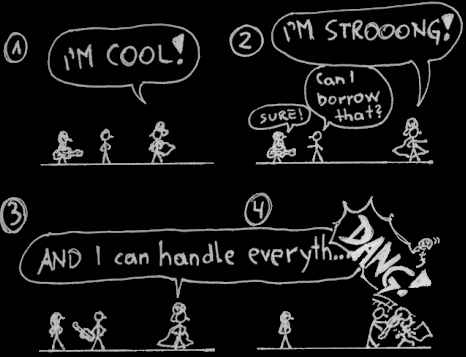 1
I'M COOL!
2
I'M STROOONG!
Can I
borrow
that?
SURE!
3
AND I can handle everyth...
4
DANG!